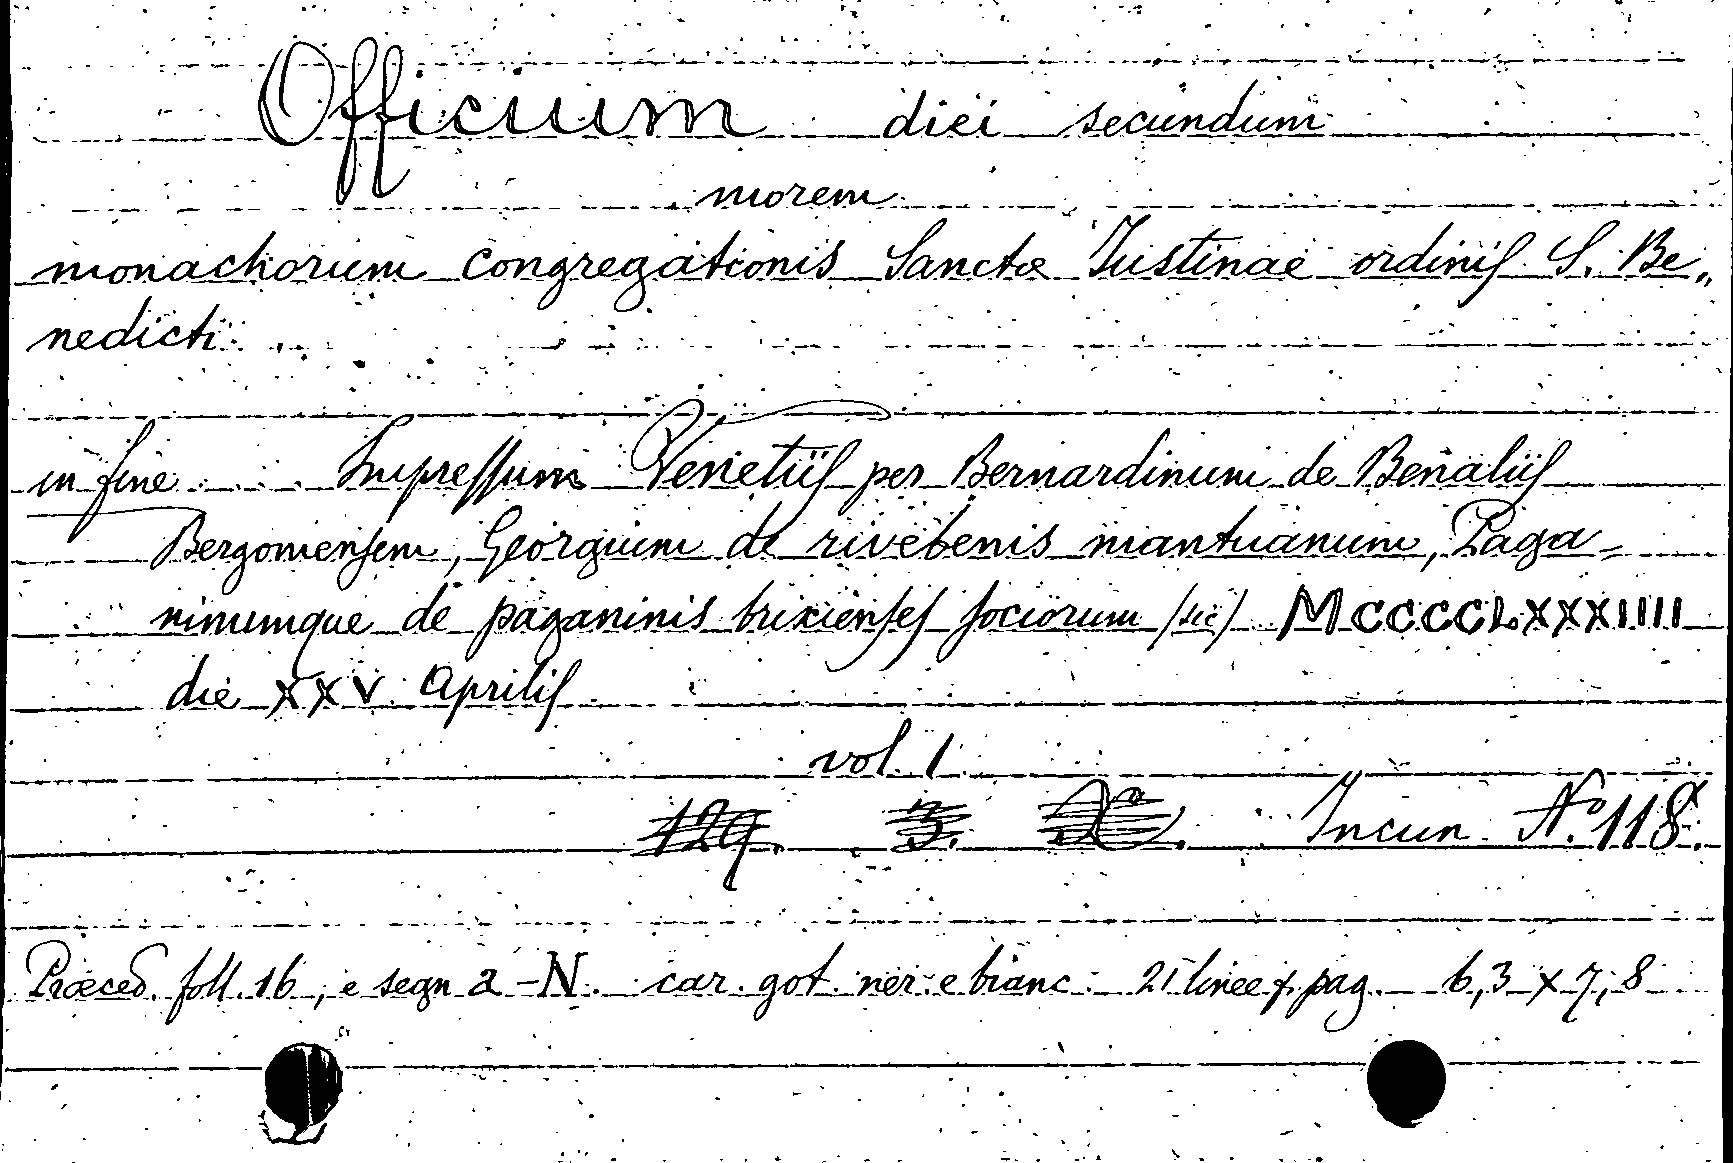 Officium diei secundum
morem
monachorum congregationis Sanctæ Iustinae ordinis S. Be„
nedicti
in fine Impressum Venetiis per Bernardinum de Benaliis
Bergomensem, Georgium de rivebenis mantuanum, Paga-
ninumque de paganinis brixienses sociorum /sic/ MCCCCCLXXXIIII
die XXV Aprilis
vol. 1
129. 3. Incun. Nº 118.
Præced. foll. 16, e segn a-N. car. got. ner. e bianc. 21 linee x pag. 6,3 x 7,8